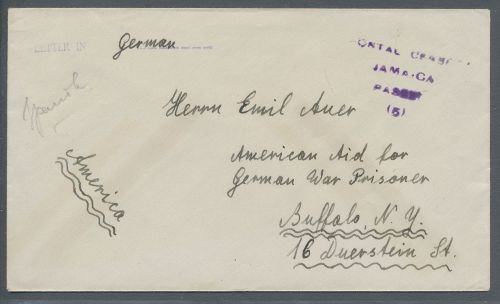 LETTER IN German
POSTAL CENSOR
JAMAICA
PASSED
(5)
Spanish.
Herrn Emil Auer
America
American Aid for
German War Prisoner
Buffalo, N.Y.
16 Duerstein St.